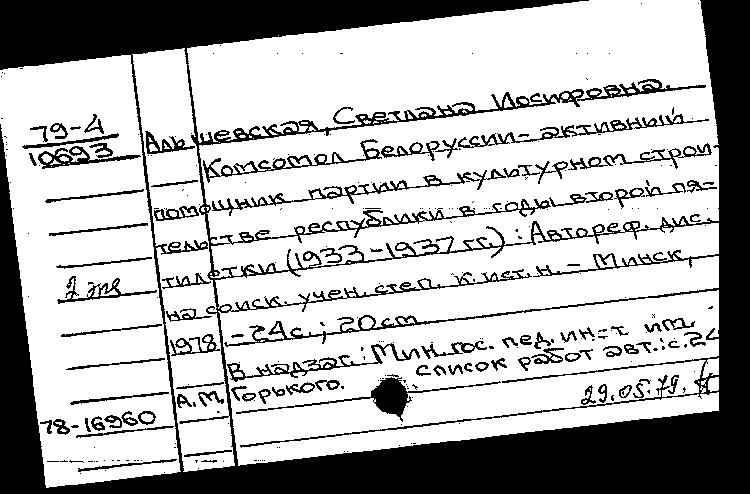 79-4
10693
Альшевская, Светлана Иосифовна.
Комсомол Белоруссии - активный
помощник партии в культурном строи-
тельстве республики в годы второй пя=
тилетки (1933-1937 гг.) : Автореф. дис.
2 экз
на соиск. учен. степ. к. ист. н. - Минск,
1978. - 24с. ; 20см
В надзаг. : Мин. гос. пед. ин=т им.
А.М. Горького. Список работ авт.: с. 24
78-16960
29.05.79.